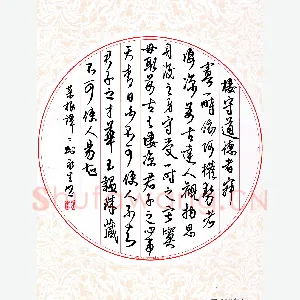 棲守道德者寂
寞一時依阿權勢者
淒涼萬古達人觀物思
身後之身寧受一時之寂寞
毋取萬古之淒涼君子之心事
天青日白不可使人不知
君子之才華玉韞珠藏
不可使人易知
菜根譚